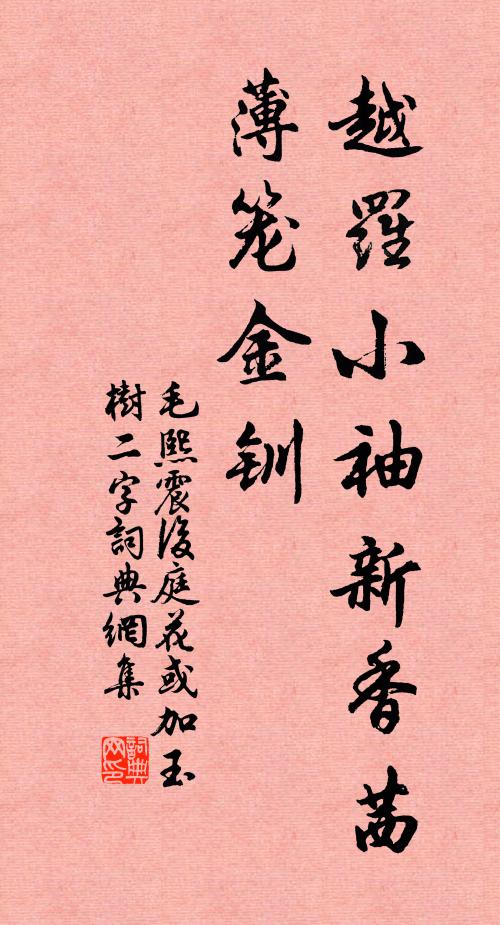 越羅小袖新香蒨
薄笼金钏
毛熙震後庭花或加玉
樹二字詞典網集
詞典网印